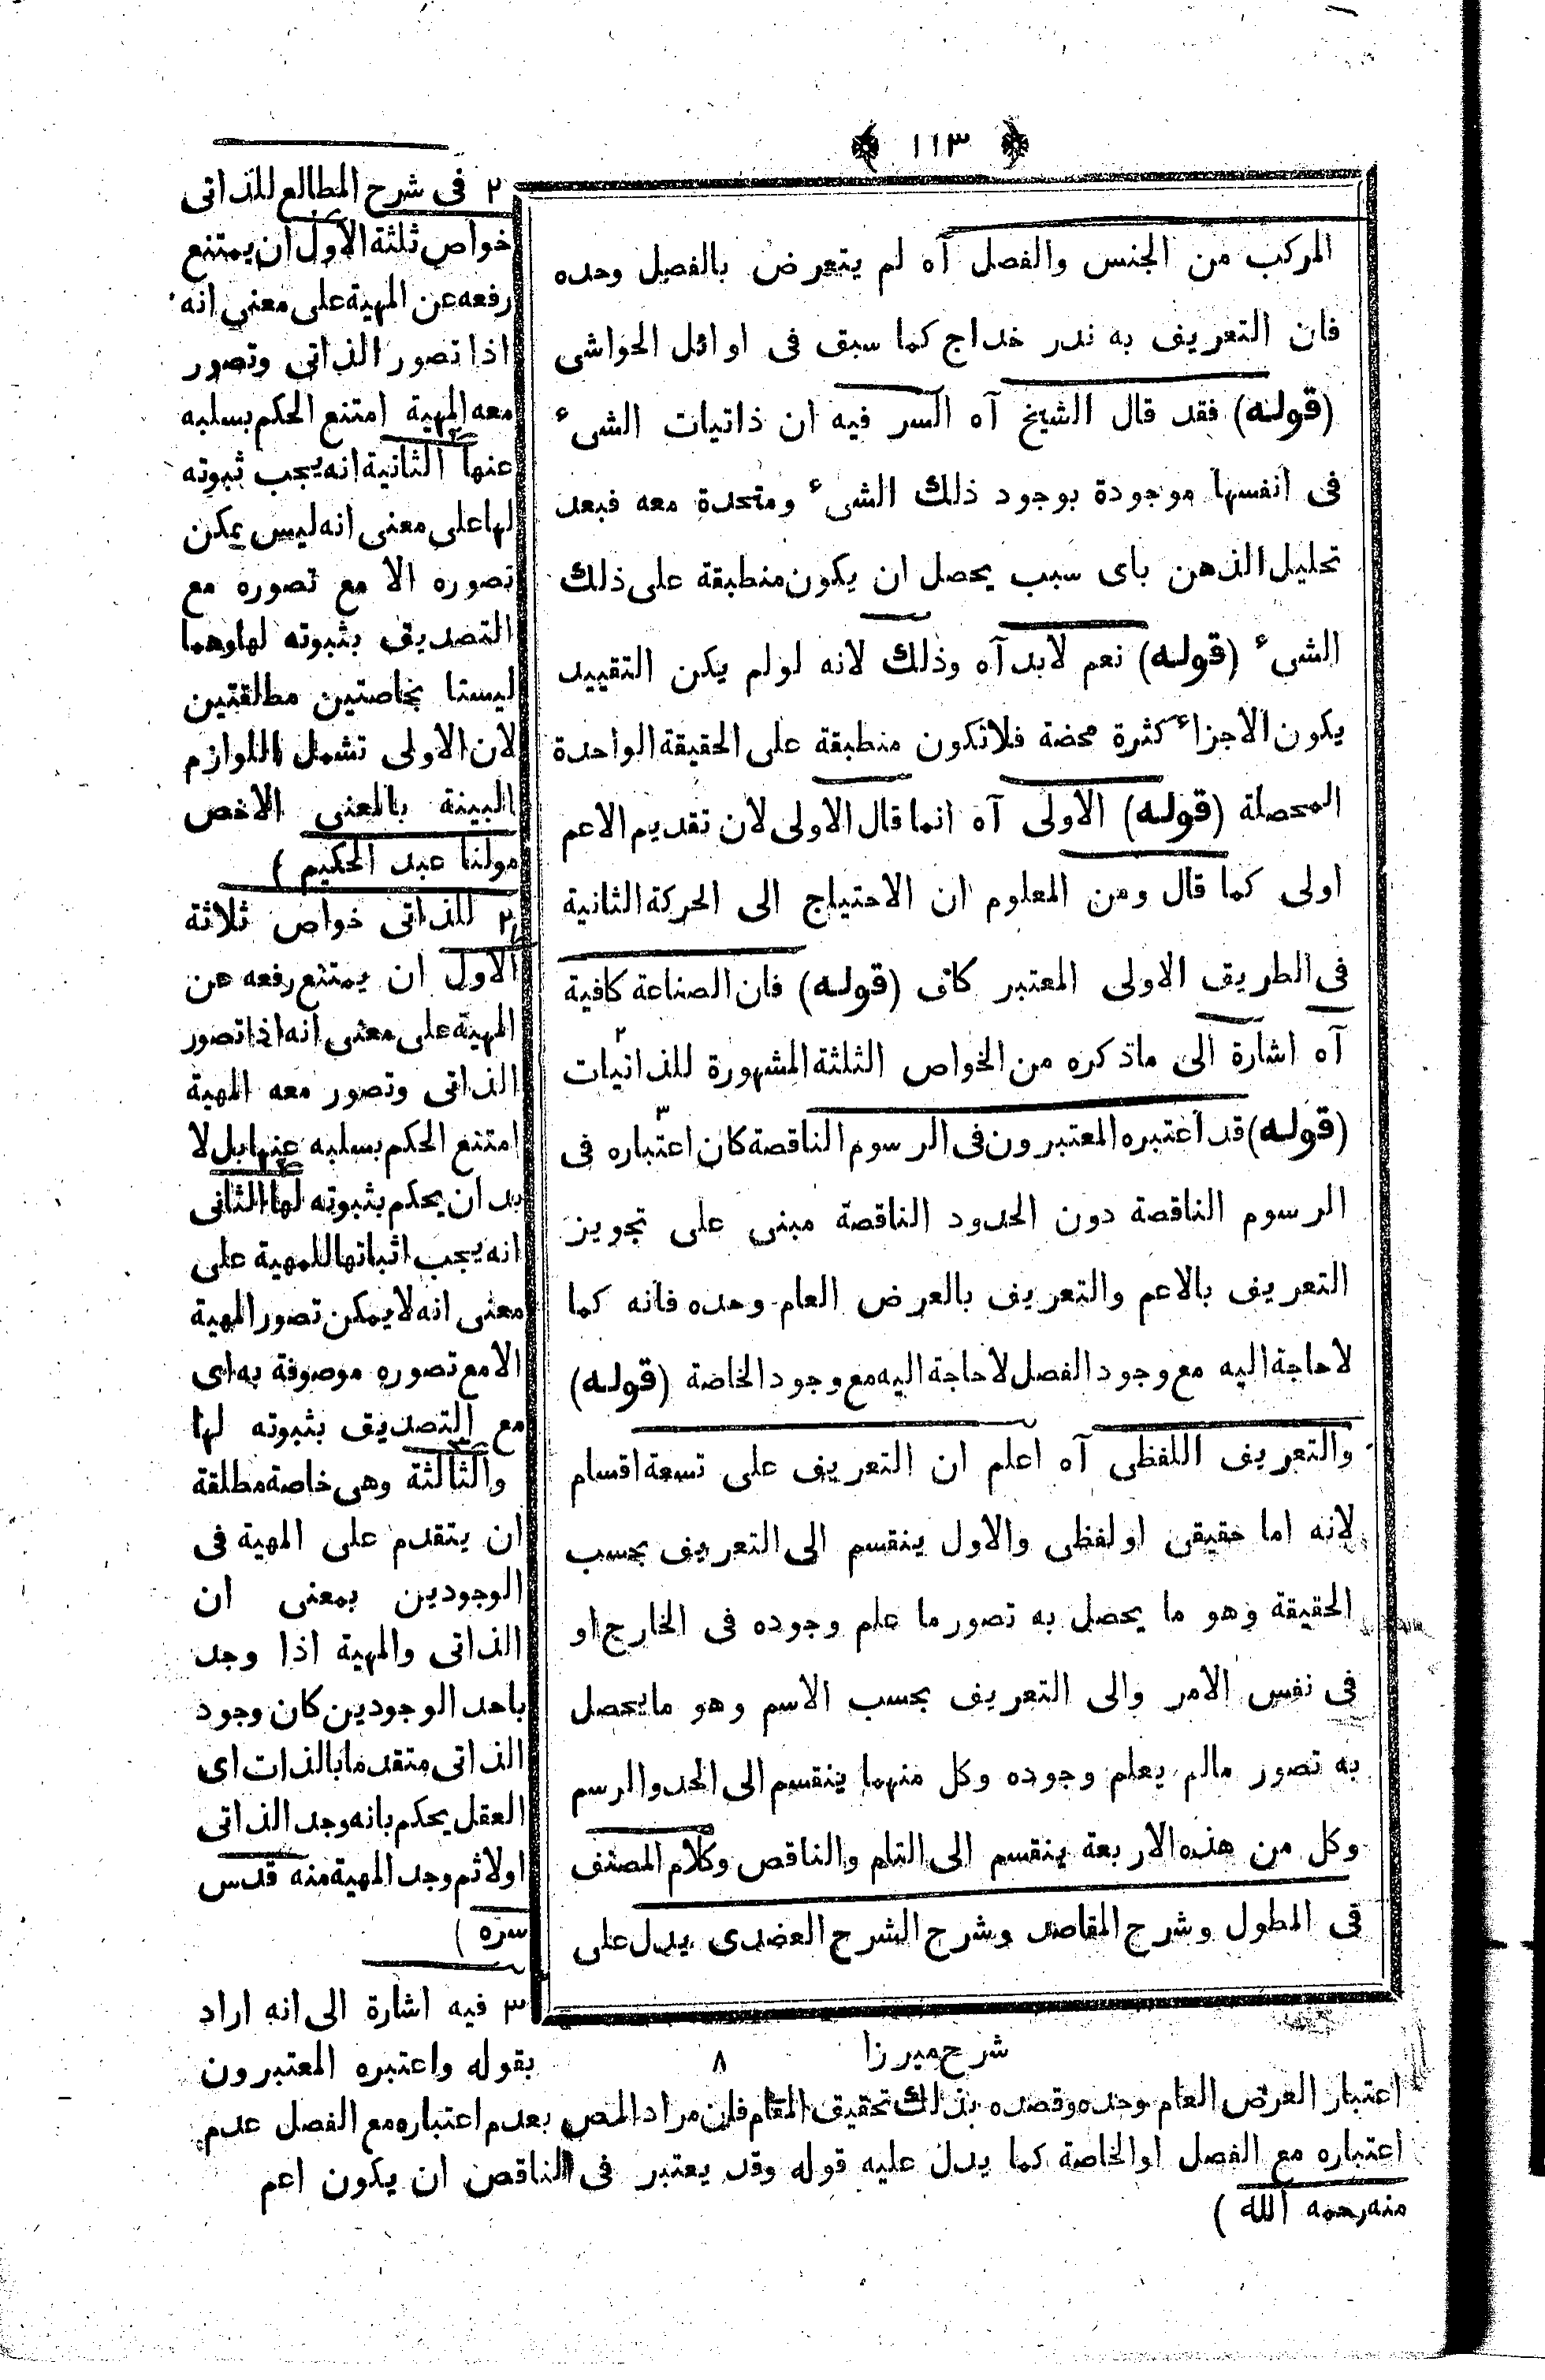 ﴿ ١١٣ ﴾
المركب من الجنس والفصل آه لم يتعرض بالفصل وحده
فان التعريف به ندر خداج كما سبق فى اوائل الحواشى
(قوله) فقد قال الشيخ آه السر فيه ان ذاتيات الشىء
فى انفسها موجودة بوجود ذلك الشىء ومتحدة معه فبعد
تحليل الذهن باى سبب يحصل ان يكون منطبقة على ذلك
الشىء (قوله) نعم لابد آه وذلك لانه لولم يكن التقييد
يكون الاجزاء كثرة محضة فلاتكون منطبقة على الحقيقة الواحدة
المحصلة (قوله) الاولى آه انما قال الاولى لان تقديم الاعم
اولى كما قال ومن المعلوم ان الاحتياج الى الحركة الثانية
فى الطريق الاولى المعتبر كاف (قوله) فان الصناعة كافية
آه اشارة الى ماذكره من الخواص الثلثة المشهورة للذاتيات ٢
(قوله) قد اعتبره المعتبرون فى الرسوم الناقصة كان اعتباره فى ٣
الرسوم الناقصة دون الحدود الناقصة مبنى على تجويز
التعريف بالاعم والتعريف بالعرض العام وحده فانه كما
لاحاجة اليه مع وجود الفصل لاحاجة اليه مع وجود الخاصة (قوله)
والتعريف اللفظى آه اعلم ان التعريف على تسعة اقسام
لانه اما حقيقى اولفظى والاول ينقسم الى التعريف بحسب
الحقيقة وهو ما يحصل به تصور ما علم وجوده فى الخارج او
فى نفس الامر والى التعريف بحسب الاسم وهو مايحصل
به تصور مالم يعلم وجوده وكل منهما ينقسم الى الحد والرسم
وكل من هذه الاربعة ينقسم الى التام والناقص وكلام المصنف
فى المطول وشرح المقاصد وشرح الشرح العضدى يدل على
شرح ميرزا ٨
٢ فى شرح المطالع للذاتى
خواص ثلثة الاول ان يمتنع
رفعه عن المهية على معنى انه
اذا تصور الذاتى وتصور
معه المهية امتنع الحكم بسلبه
عنها الثانية انه يجب ثبوته
لها على معنى انه ليس يمكن
تصوره الا مع تصوره مع
التصديق بثبوته لها وهما
ليستا بخاصتين مطلقتين
لان الاولى تشمل اللوازم
البينة بالمعنى الاخص
مولنا عبد الحكيم )
٢ للذاتى خواص ثلاثة
الاول ان يمتنع رفعه عن
المهية على معنى انه اذا تصور
الذاتى وتصور معه المهية
امتنع الحكم بسلبه عنها بل لا
بد ان يحكم بثبوته لها الثانى
انه يجب اثباتها للمهية على
معنى انه لا يمكن تصور المهية
الا مع تصوره موصوفة به اى
مع التصديق بثبوته لها
والثالثة وهى خاصة مطلقة
ان يتقدم على المهية فى
الوجودين بمعنى ان
الذاتى والمهية اذا وجد
باحد الوجودين كان وجود
الذاتى متقدما بالذات اى
العقل يحكم بانه وجد الذاتى
اولا ثم وجد المهية منه قدس
سره )
٣ فيه اشارة الى انه اراد
بقوله واعتبره المعتبرون
اعتبار العرض العام وحده وقصده بذلك تحقيق المقام فان مراد المص بعدم اعتباره مع الفصل عدم
اعتباره مع الفصل اوالخاصة كما يدل عليه قوله وقد يعتبر فى الناقص ان يكون اعم
منه رحمه الله )